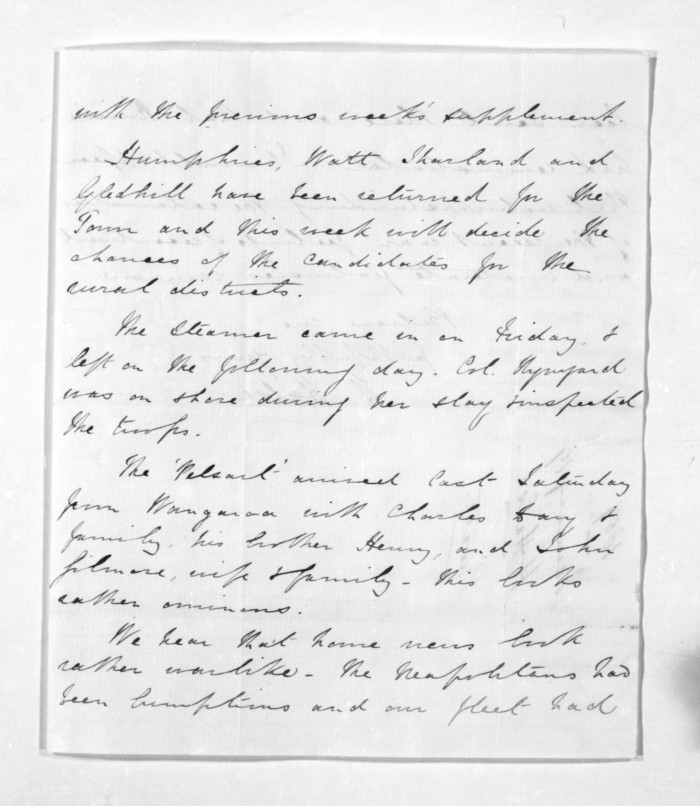 with the previous week's supplement.
Humphries, Watt, Tharland and
Gledhill have been returned for the
Town and this week will decide the
chances of the candidates for the
rural districts.
The steamer came in on Friday, &
left on the following day. Col. Wynyard
was on shore during her stay & inspected
the troops.
The 'Pelsart' arrived last Saturday
from Wangaroa with Charles Davy &
family, his brother Henry, and John
Gilmore, wife & family - this looks
rather ominous.
We hear that home news look
rather warlike - the Neapolitans had
been bumptious and our fleet had